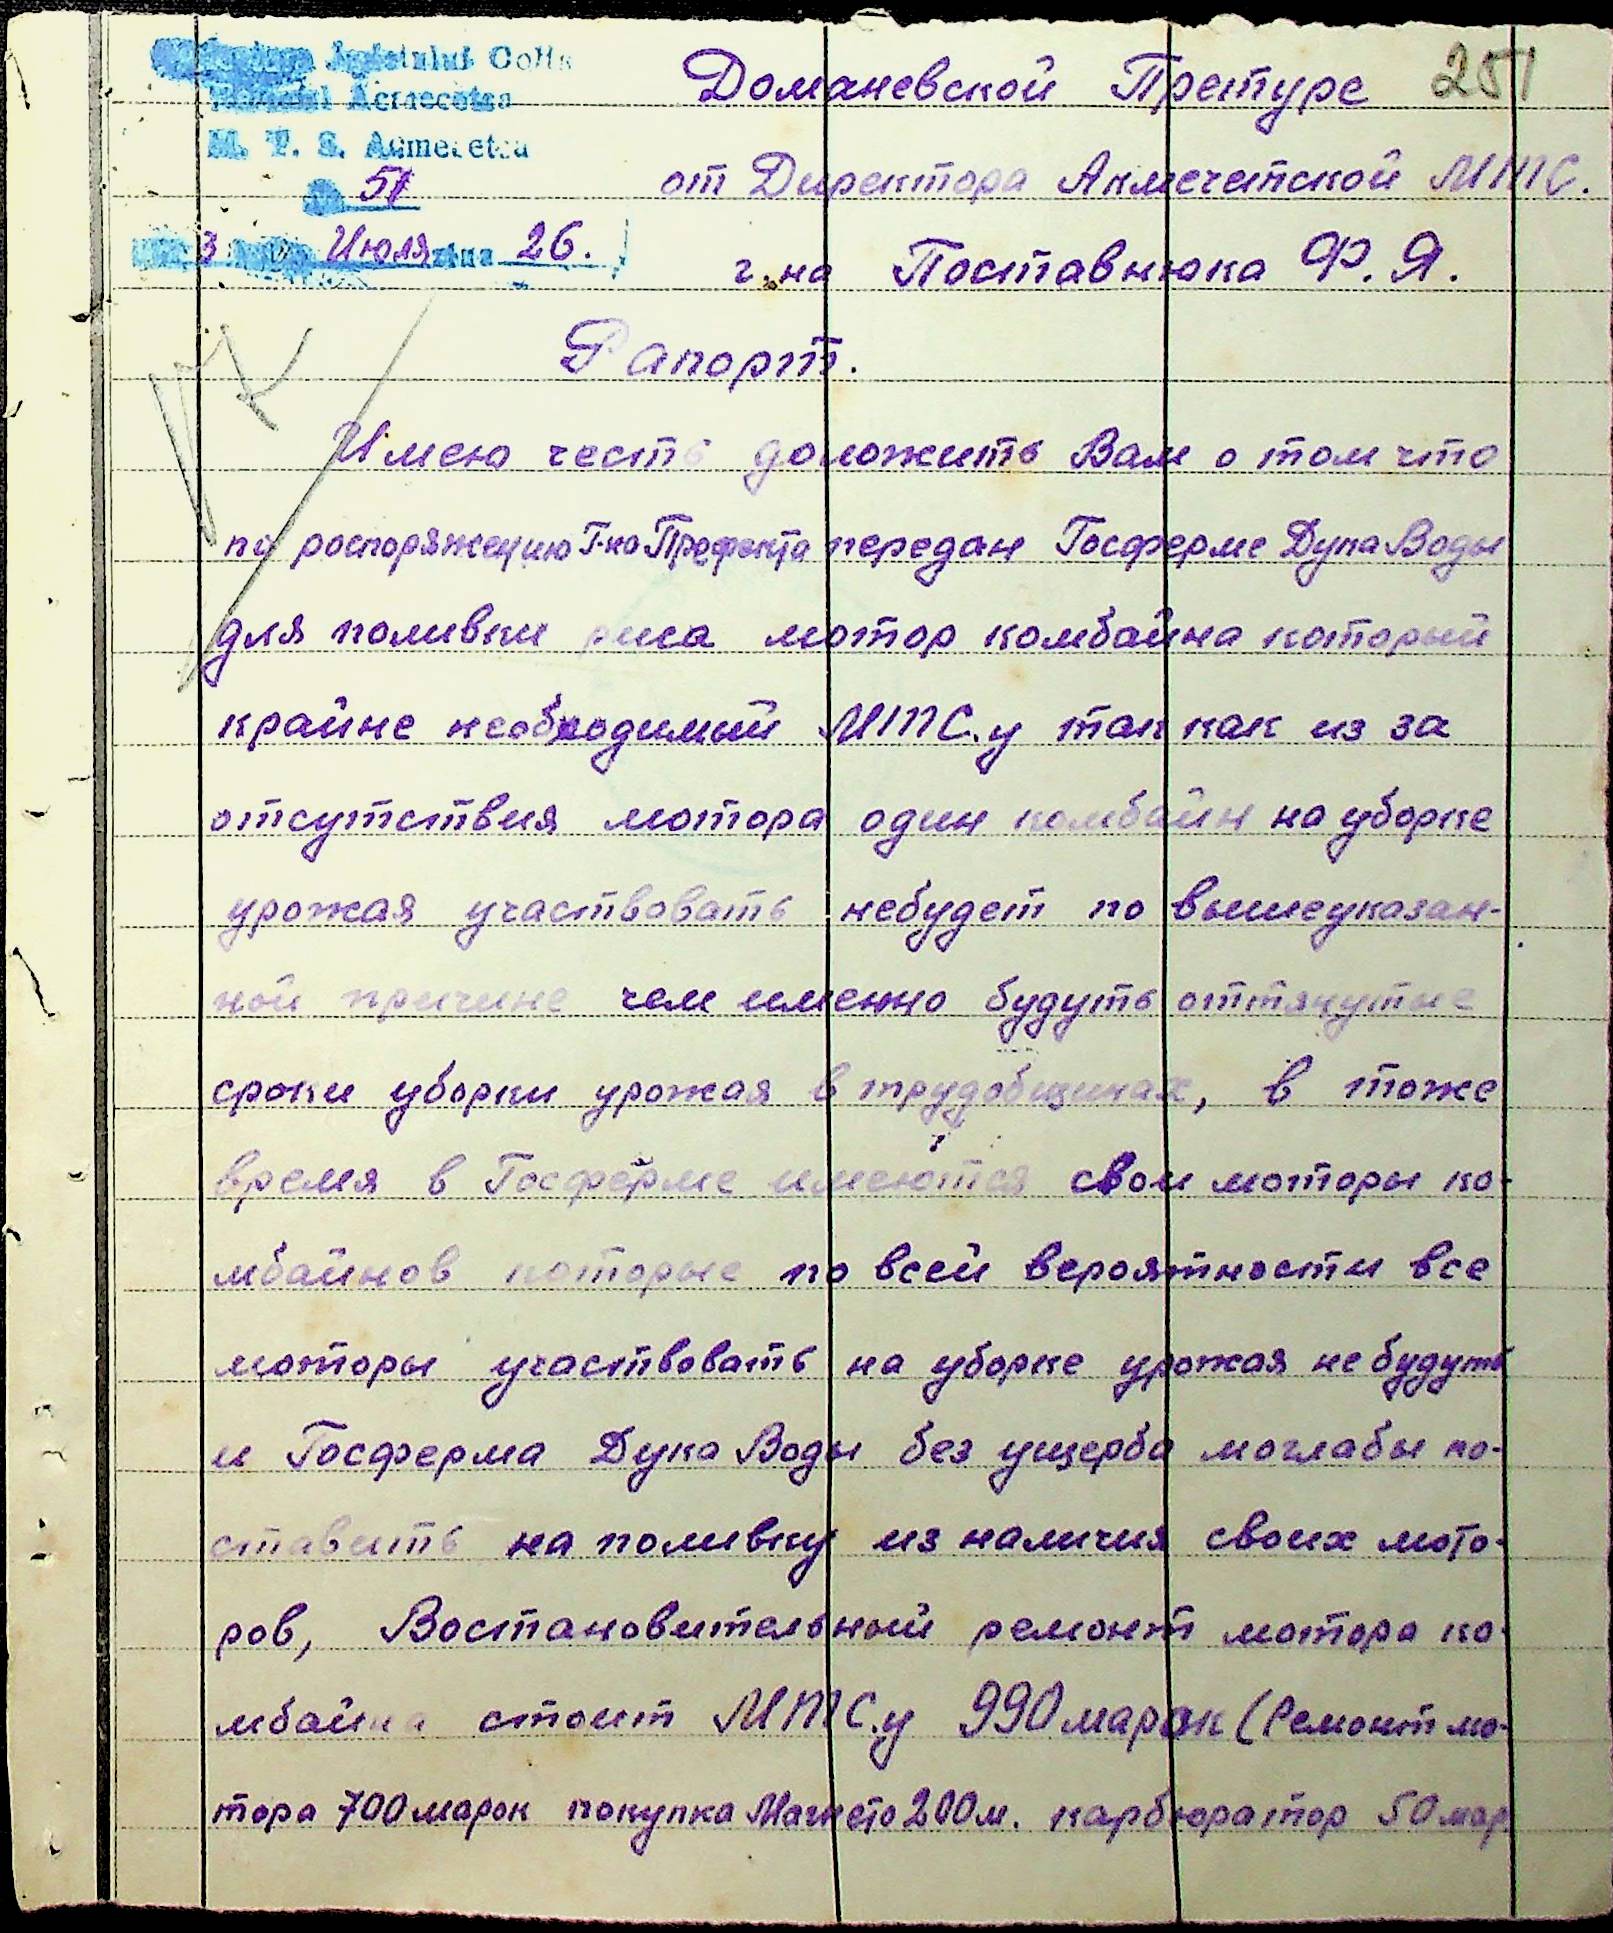 251
Acmecetca
M. T. S. Acmecetca
51
3 Июля 26.
Доманевской Претуре
от Директора Акмечетской МТС.
г-на Поставнюка Ф. Я.
Рапорт.
Имею честь доложить Вам о том что
по роспоряжению Г-на Префекта передан Госферме Дука Воды
для поливки риса мотор комбайна который
крайне необходимый МТС.у так как из за
отсутствия мотора один комбайн на уборке
урожая участвовать небудет по вышеуказан-
ной причине чем именно будуть оттянутые
сроки уборки урожая в трудобщинах, в тоже
время в Госферме имеются свои моторы ко-
мбайнов которые по всей вероятности все
моторы участвовать на уборке урожая не будуть
и Госферма Дука Воды без ущерба моглабы по-
ставить на поливку из наличия своих мото-
ров, Востановительный ремонт мотора ко-
мбайна стоит МТС.у 990 марок (Ремонт мо-
тора 700 марок покупка Магнето 200 м. карбюратор 50 мар